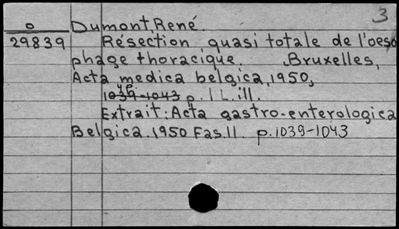 3
o Dumont, René.
29839 Résection quasi totale de l'oeso
phage thoracique. Bruxelles,
Acta medica belgica, 1950,
1039-1043 p. 1 L. ill.
Extrait: Acta gastro-enterologica
Belgica. 1950 Fas. 11. p. 1039-1043